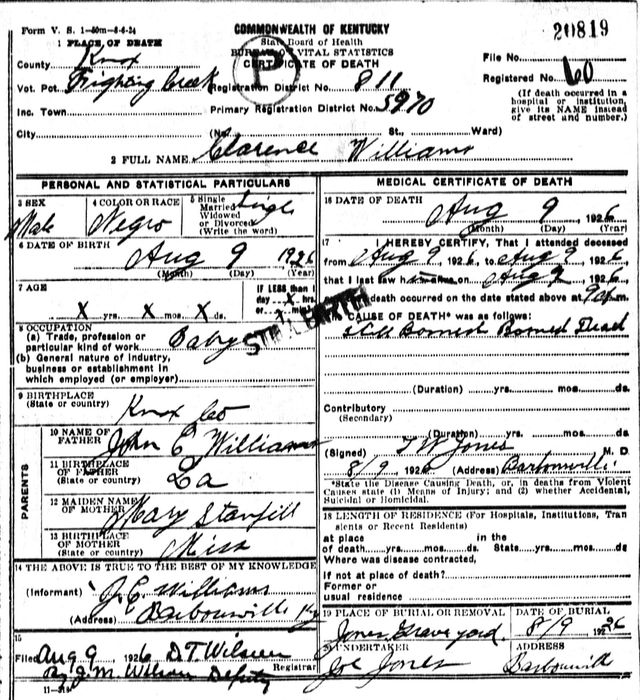 Form V. S. 1-50m-8-6-24
COMMONWEALTH OF KENTUCKY
State Board of Health
BUREAU OF VITAL STATISTICS
CERTIFICATE OF DEATH
20819
P
1 PLACE OF DEATH
County Knox
Vot. Pct. Fighting Creek
Registration District No. 811
File No.
Registered No. 60
Inc. Town
Primary Registration District No. 5970
(If death occurred in a hospital or institution, give its NAME instead of street and number.)
City (No. St., Ward)
2 FULL NAME Clarence Williams
PERSONAL AND STATISTICAL PARTICULARS
3 SEX Male
4 COLOR OR RACE Negro
5 Single Married Widowed or Divorced (Write the word) Single
6 DATE OF BIRTH Aug 9 1926
(Month) (Day) (Year)
7 AGE
X yrs. X mos. X ds.
IF LESS than 1 day X hrs. or X
STILLBIRTH
8 OCCUPATION
(a) Trade, profession or particular kind of work Baby
(b) General nature of industry, business or establishment in which employed (or employer)
9 BIRTHPLACE
(State or country) Knox Co
PARENTS
10 NAME OF FATHER John E Williams
11 BIRTHPLACE OF FATHER
(State or country) La
12 MAIDEN NAME OF MOTHER Mary Stanfill
13 BIRTHPLACE OF MOTHER
(State or country) Miss
14 THE ABOVE IS TRUE TO THE BEST OF MY KNOWLEDGE
(Informant) J. E. Williams
(Address) Barbourville Ky
15
Filed Aug 9 1926 D T Wilson
Registrar
By J. M. Wilson Deputy
11-3184
MEDICAL CERTIFICATE OF DEATH
16 DATE OF DEATH
Aug 9, 1926
(Month) (Day) (Year)
17 I HEREBY CERTIFY, That I attended deceased
from Aug 9 1926, to Aug 9 1926,
that I last saw h alive on Aug 9 1926
death occurred on the date stated above at 9 a.m.
CAUSE OF DEATH* was as follows:
Still Borned Borned Dead
(Duration) yrs. mos. ds.
Contributory
(Secondary)
(Duration) yrs. mos. ds.
(Signed) T W Jones M. D.
8/9, 1926 (Address) Barbourville
*State the Disease Causing Death, or, in deaths from Violent Causes state (1) Means of Injury; and (2) whether Accidental, Suicidal or Homicidal.
18 LENGTH OF RESIDENCE (For Hospitals, Institutions, Transients or Recent Residents)
at place of death yrs. mos. ds. in the State yrs. mos. ds.
Where was disease contracted,
if not at place of death?
Former or
usual residence
19 PLACE OF BURIAL OR REMOVAL
Jones Graveyard
DATE OF BURIAL
8/9 1926
20 UNDERTAKER
Joe Jones
ADDRESS
Barbourvill